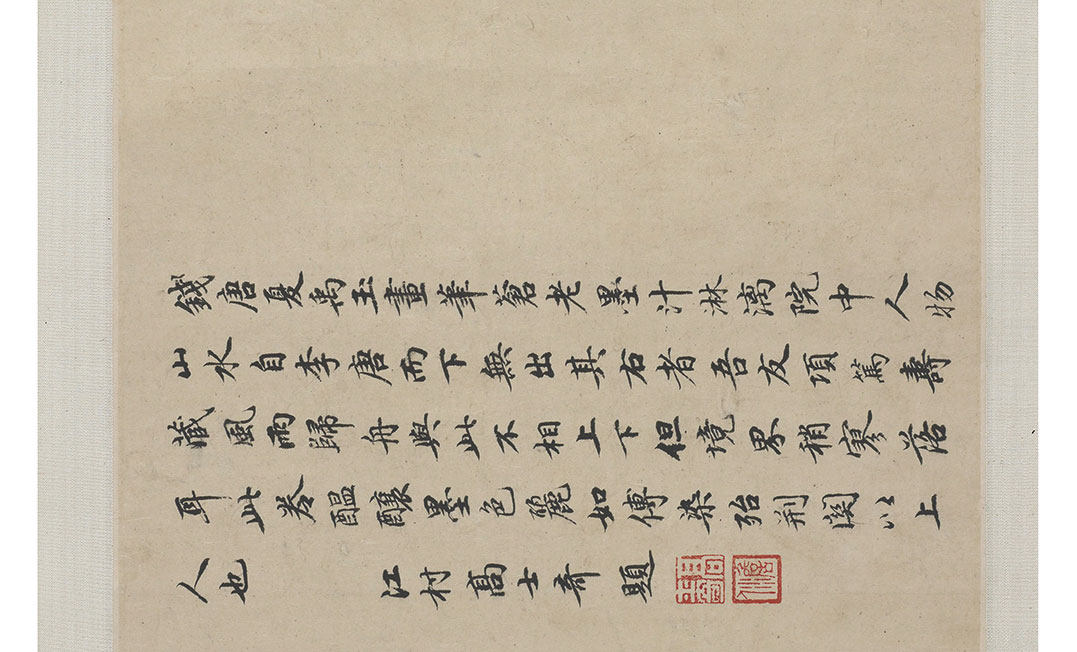 錢唐夏禹玉畫筆蒼老墨汁淋漓院中人物
山水自李唐而下無出其右者吾友項篤壽
藏風雨歸舟與此不相上下但境界稍寥落
耳此卷醞釀墨色麗如傅染殆荆關以上
人也 江村高士奇題